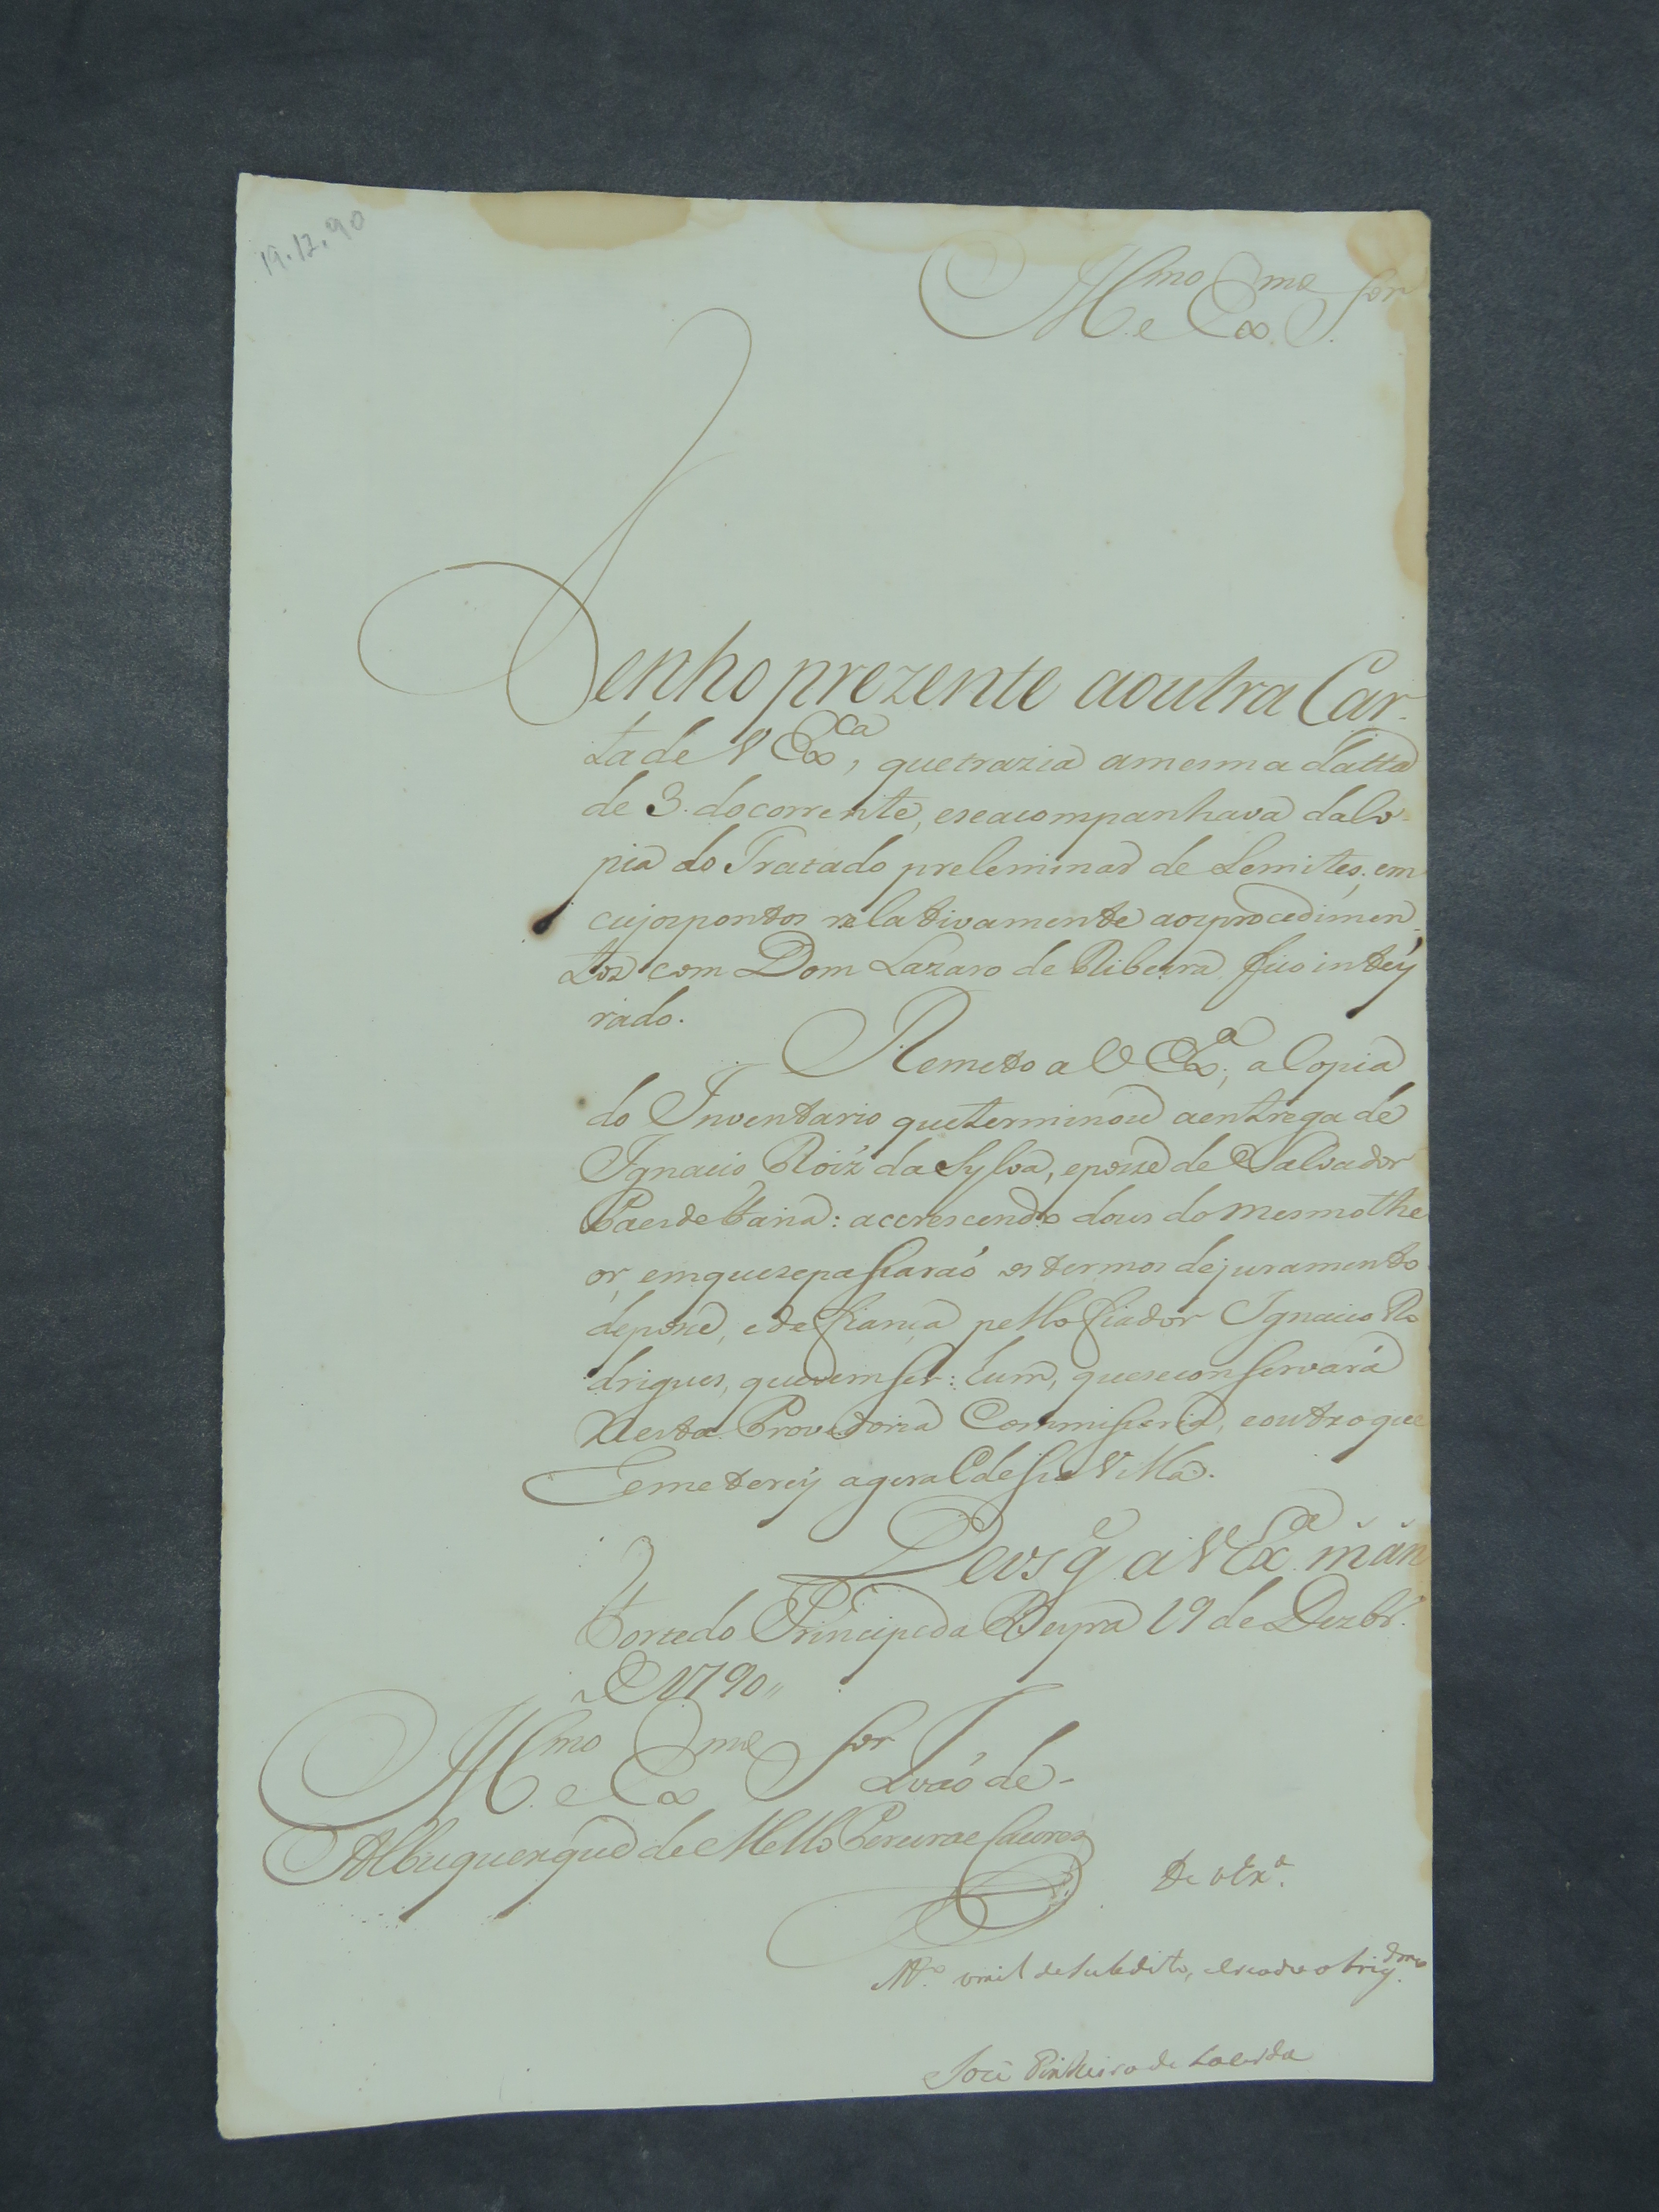 19.12.90
Ill.mo e Ex.mo S.or
Tenho prezente a outra Car-
ta de V Ex.ca, que trazia a mesma datta
de 3. do corrente, e se acompanhava da Co-
pia do Tratado preleminar de Lemites; em
cujos pontos relativamente aos procedimen-
tos com Dom Lazaro de Ribeira, fico intey
rado.
Remeto a V Ex.a, a Copia
do Inventario que terminou a entrega de
Ignacio Roiz da Sylva, e posse de Salvador
Paes de Faria: accrescendo dous do mesmo the
or, em que se passaraó os termos de juramento
de posse, e de fiança pello fiador Ignacio Ro
drigues, que vem ser: hum, que se conservará
Nesta Provedoria Commissaria, e outro que
Remeterey a geral dessa Villa.
Deos g.e a V Ex.a m. an
Forte do Principe da Beyra 19 de Dezbr.
de 1790 „
Ill.mo e Ex.mo S.or Joaó de -
Albuquerque de Mello Pereira e Caceres
De V Ex.a
M.to umil de subdito, e creado obrig.dmo
José Pinheiro de Lacerda